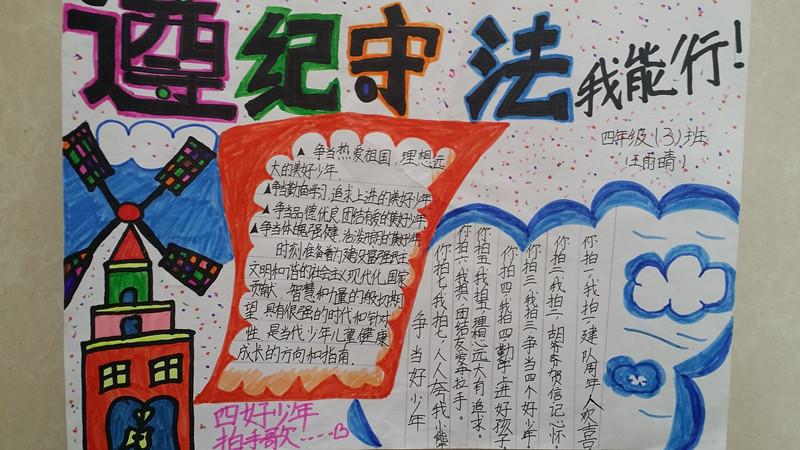 遵纪守法 我能行!
四年级(3)班
汪雨晴
▲争当热爱祖国、理想远
大的美好少年
▲争当勤奋学习、追求上进的美好少年
▲争当品德优良、团结友爱的美好少年
▲争当体魄强健、活泼开朗的美好少年
时刻准备着为建设富强民主
文明和谐的社会主义现代化国家
贡献 智慧和力量的
望 具有很强的时代和针对
性 是当代少年儿童健康
成长的方向和指南.
四好少年
拍手歌……
你拍一我拍一建队周年人欢喜
你拍二我拍二胡爷爷贺信记心怀.
你拍三我拍三争当四个好少年.
你拍四我拍四勤学上进好孩子.
你拍五我拍五理想远大有追求.
你拍六我拍六团结友爱争拉手.
你拍七我拍七人人夸我小
争当好少年